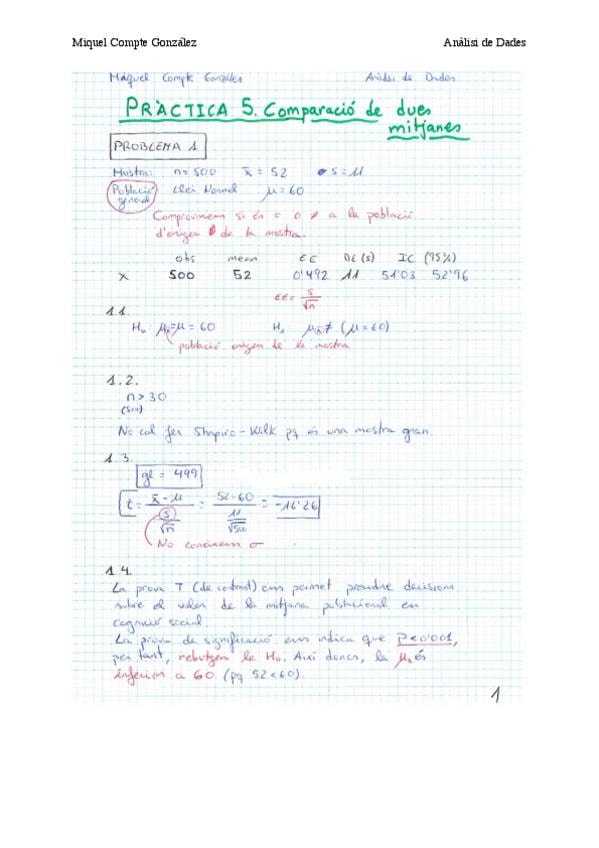 Miquel Compte González Anàlisi de Dades
Miquel Compte González Anàlisi de Dades
PRÀCTICA 5. Comparació de dues
mitjanes
PROBLEMA 1
Mostra: n=500 x̄ = 52 s=11
Població Llei Normal μ=60
general
Comprovarem si és = o ≠ a la població
d'origen de la mostra.
obs mean EE DE (s) IC (95%)
X 500 52 0'492 11 51'03 52'96
EE= s/√n
1.1.
H₀: μₓ=μ = 60 H₁ μₓ≠ (μ=60)
població origen de la mostra
1.2.
n>30
(500)
No cal fer Shapiro-Wilk pq és una mostra gran.
1.3.
gl = 499
t = (x̄ - μ)/(s/√n) = (52-60)/(11/√500) = -16'26
No coneixem σ
1.4.
La prova T (de contrast) ens permet prendre decisions
sobre el valor de la mitjana poblacional en
cognició social.
La prova de significació ens indica que P<0'001,
per tant, rebutgem la H₀. Així doncs, la μₓ és
inferior a 60 (pq 52<60).
1